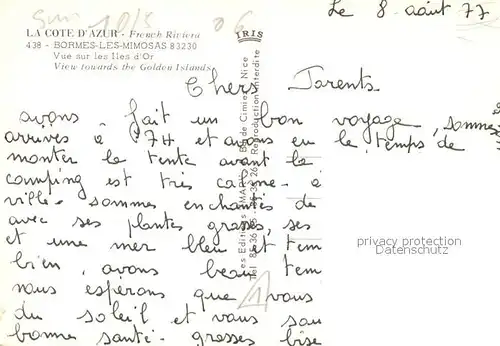 Le 8 août 77
LA COTE D'AZUR - French Riviera
438 - BORMES-LES-MIMOSAS 83230
Vue sur les Iles d'Or
View towards the Golden Islands
IRIS
Chers Parents
avons fait un bon voyage, sommes
arrivés à 17H et avons eu le temps de
monter la tente avant la
camping est très calme - a
ville - sommes enchantés de
avec ses plantes grasses, ses
et une mer bleu et tem
bien, avons beau tem
nous espérons que vous
du soleil et vous sou
bonne santé - grosses bise
Nice
Reproduction interdite
privacy protection
Datenschutz